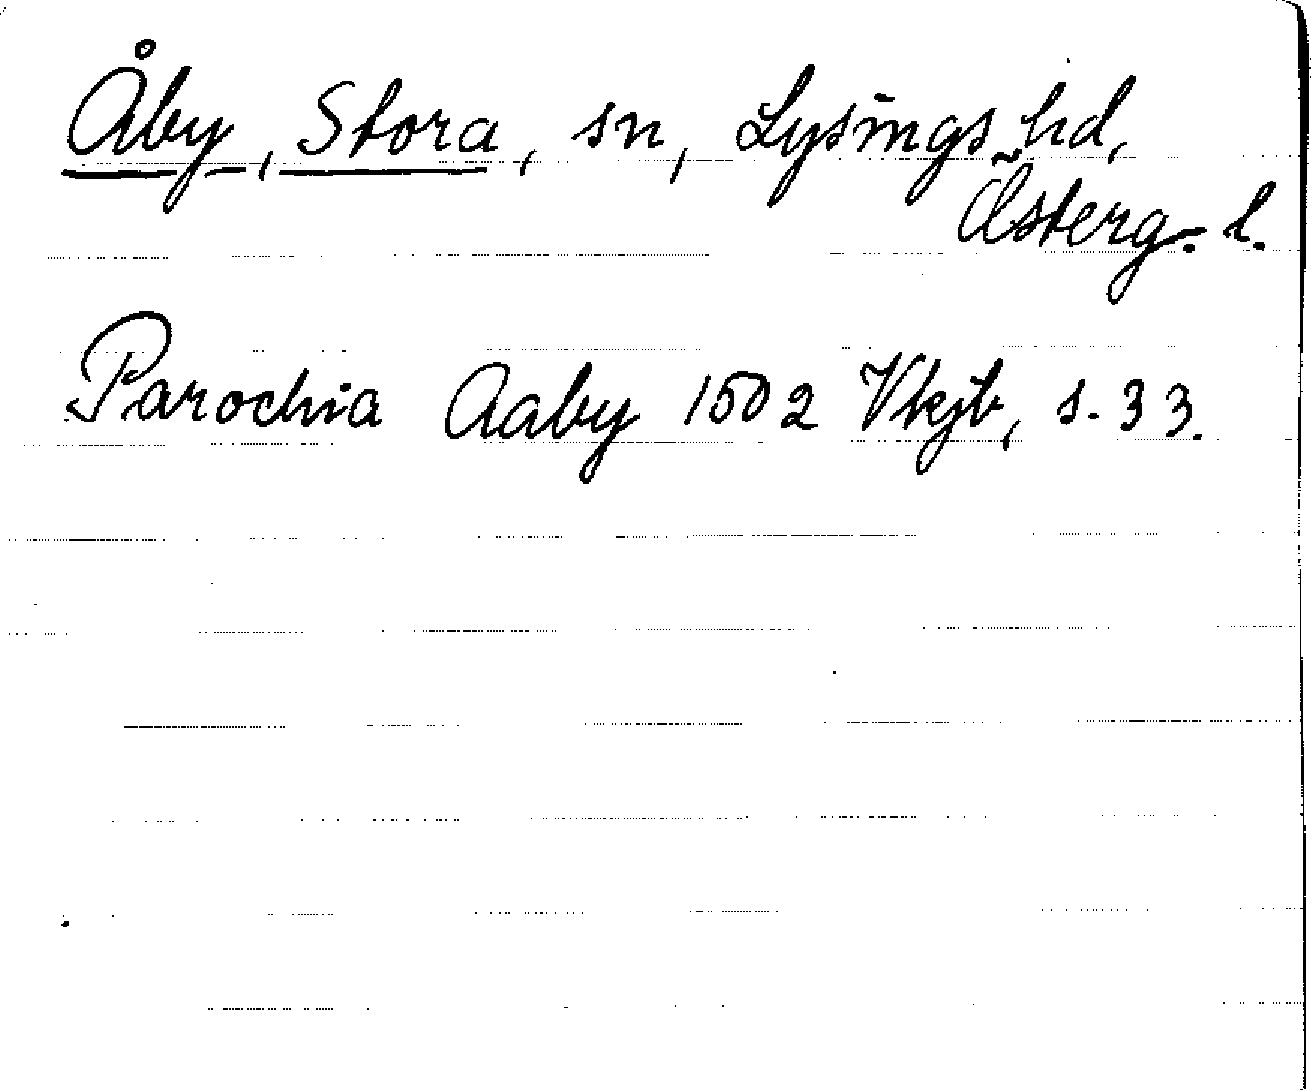 Åby, Stora, sn, Lysings hd,
Österg. l.
Parochia Aaby 1502 Vkjb, s. 33.